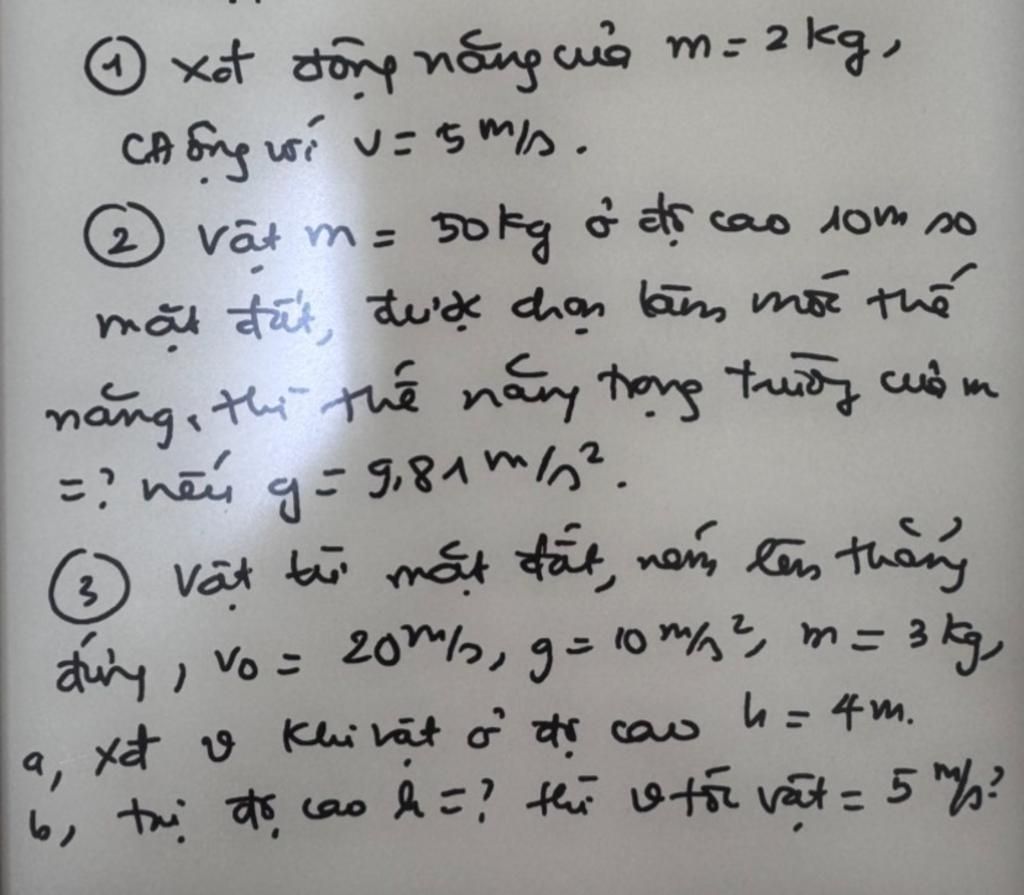 ① xét động năng của m = 2 kg,
CĐ ứng với v = 5 m/s.
② Vật m = 50 kg ở độ cao 10m so
mặt đất, được chọn làm mốc thế
năng, thì thế năng trọng trường của m
=? nếu g = 9,81 m/s².
③ Vật từ mặt đất, ném lên thẳng
đứng, v₀ = 20 m/s, g = 10 m/s², m = 3 kg,
a, xét v khi vật ở độ cao h = 4 m.
b, tại độ cao h = ? thì v tốc vật = 5 m/s?